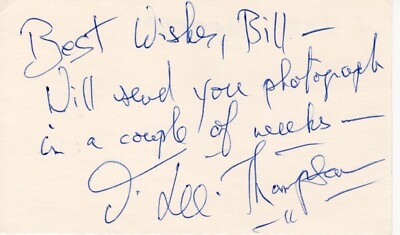 Best Wishes, Bill –
Will send you photograph
in a couple of weeks –
J. Lee. Thompson